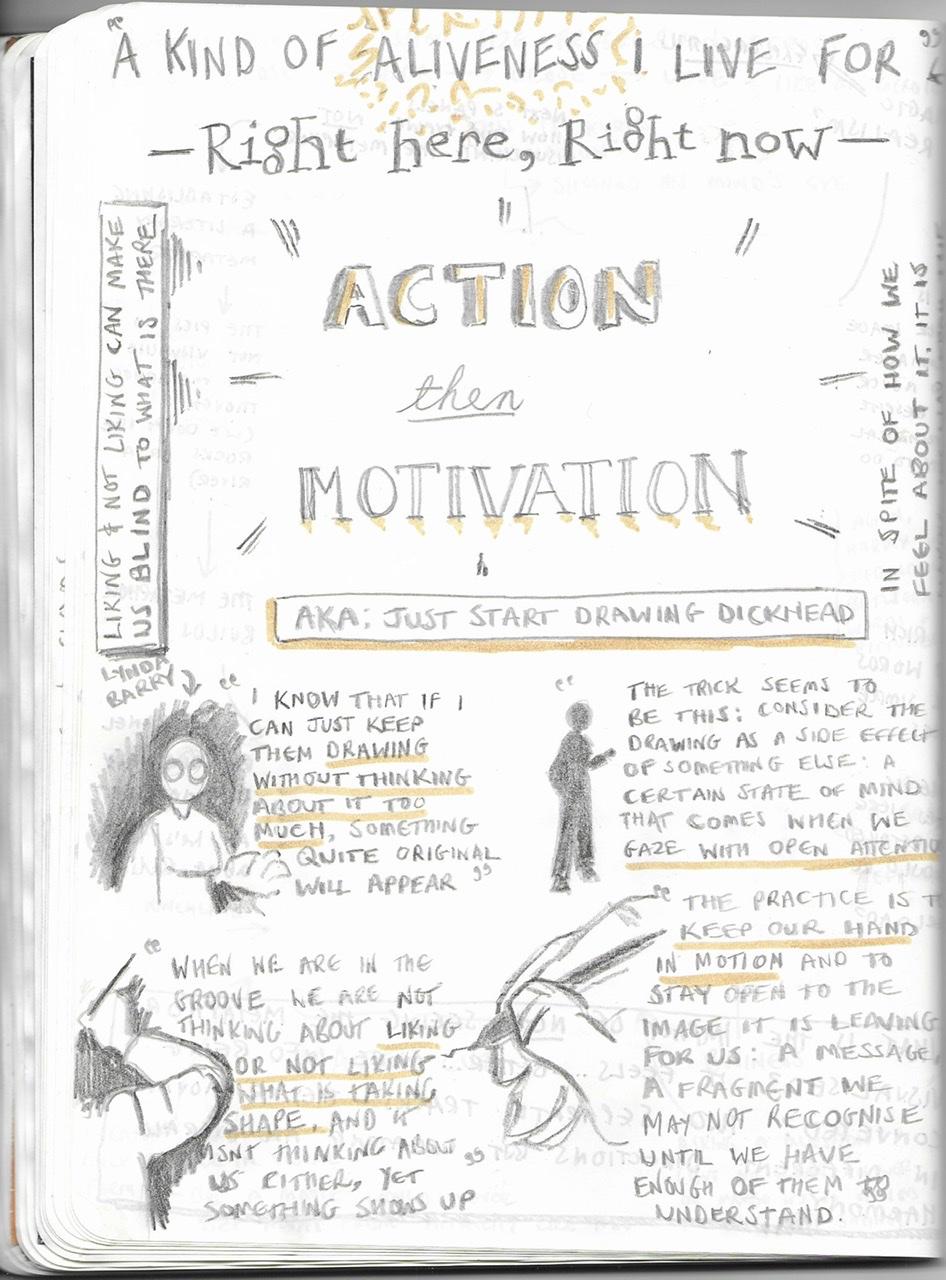 "A KIND OF ALIVENESS I LIVE FOR"
—Right here, Right now—
LIKING & NOT LIKING CAN MAKE
US BLIND TO WHAT IS THERE
IN SPITE OF HOW WE
FEEL ABOUT IT. IT IS
ACTION
then
MOTIVATION
AKA: JUST START DRAWING DICKHEAD
LYNDA
BARRY
"I KNOW THAT IF I
CAN JUST KEEP
THEM DRAWING
WITHOUT THINKING
ABOUT IT TOO
MUCH, SOMETHING
QUITE ORIGINAL
WILL APPEAR"
"THE TRICK SEEMS TO
BE THIS: CONSIDER THE
DRAWING AS A SIDE EFFECT
OF SOMETHING ELSE: A
CERTAIN STATE OF MIND
THAT COMES WHEN WE
GAZE WITH OPEN ATTENTIO
"WHEN WE ARE IN THE
GROOVE WE ARE NOT
THINKING ABOUT LIKING
OR NOT LIKING
WHAT IS TAKING
SHAPE, AND IT
ISNT THINKING ABOUT
US EITHER, YET
SOMETHING SHOWS UP"
"THE PRACTICE IS T
KEEP OUR HAND
IN MOTION AND TO
STAY OPEN TO THE
IMAGE IT IS LEAVING
FOR US: A MESSAGE
A FRAGMENT WE
MAY NOT RECOGNISE
UNTIL WE HAVE
ENOUGH OF THEM TO
UNDERSTAND.